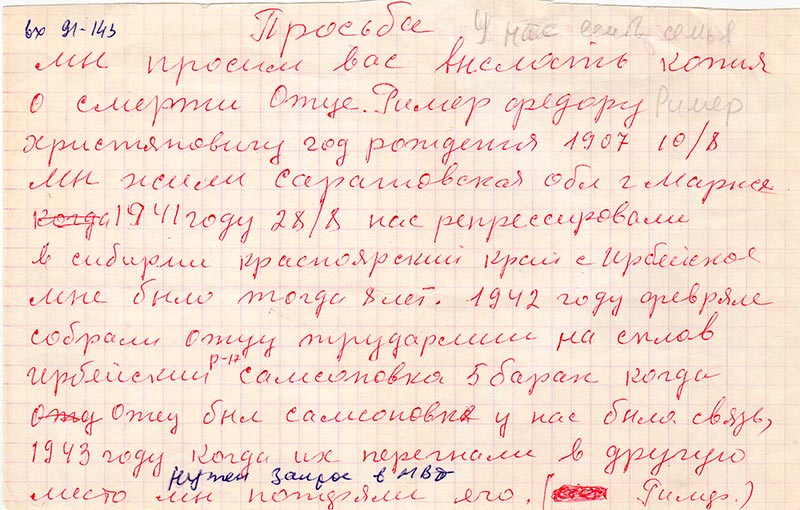 вх 91-143
Просьба
У нас семья
мы просим вас выслать копия
о смерти Отце. Ример федору Ример
христяновичу год рождения 1907 10/8
мы жили саратовская обл г марксе
когда 1941 году 28/8 нас репрессировали
в сибирии красноярский край с ирбейское
мне было тогда 8 лет. 1942 году февряле
собрали отцу трудармии на сплав
ирбейский р-н самсоновка 5 барак когда
отц Отцу был самсоновке у нас была связь,
1943 году когда их перегнали в другую
Нужен запрос в МВД
место мы потеряли его. (Римр.)